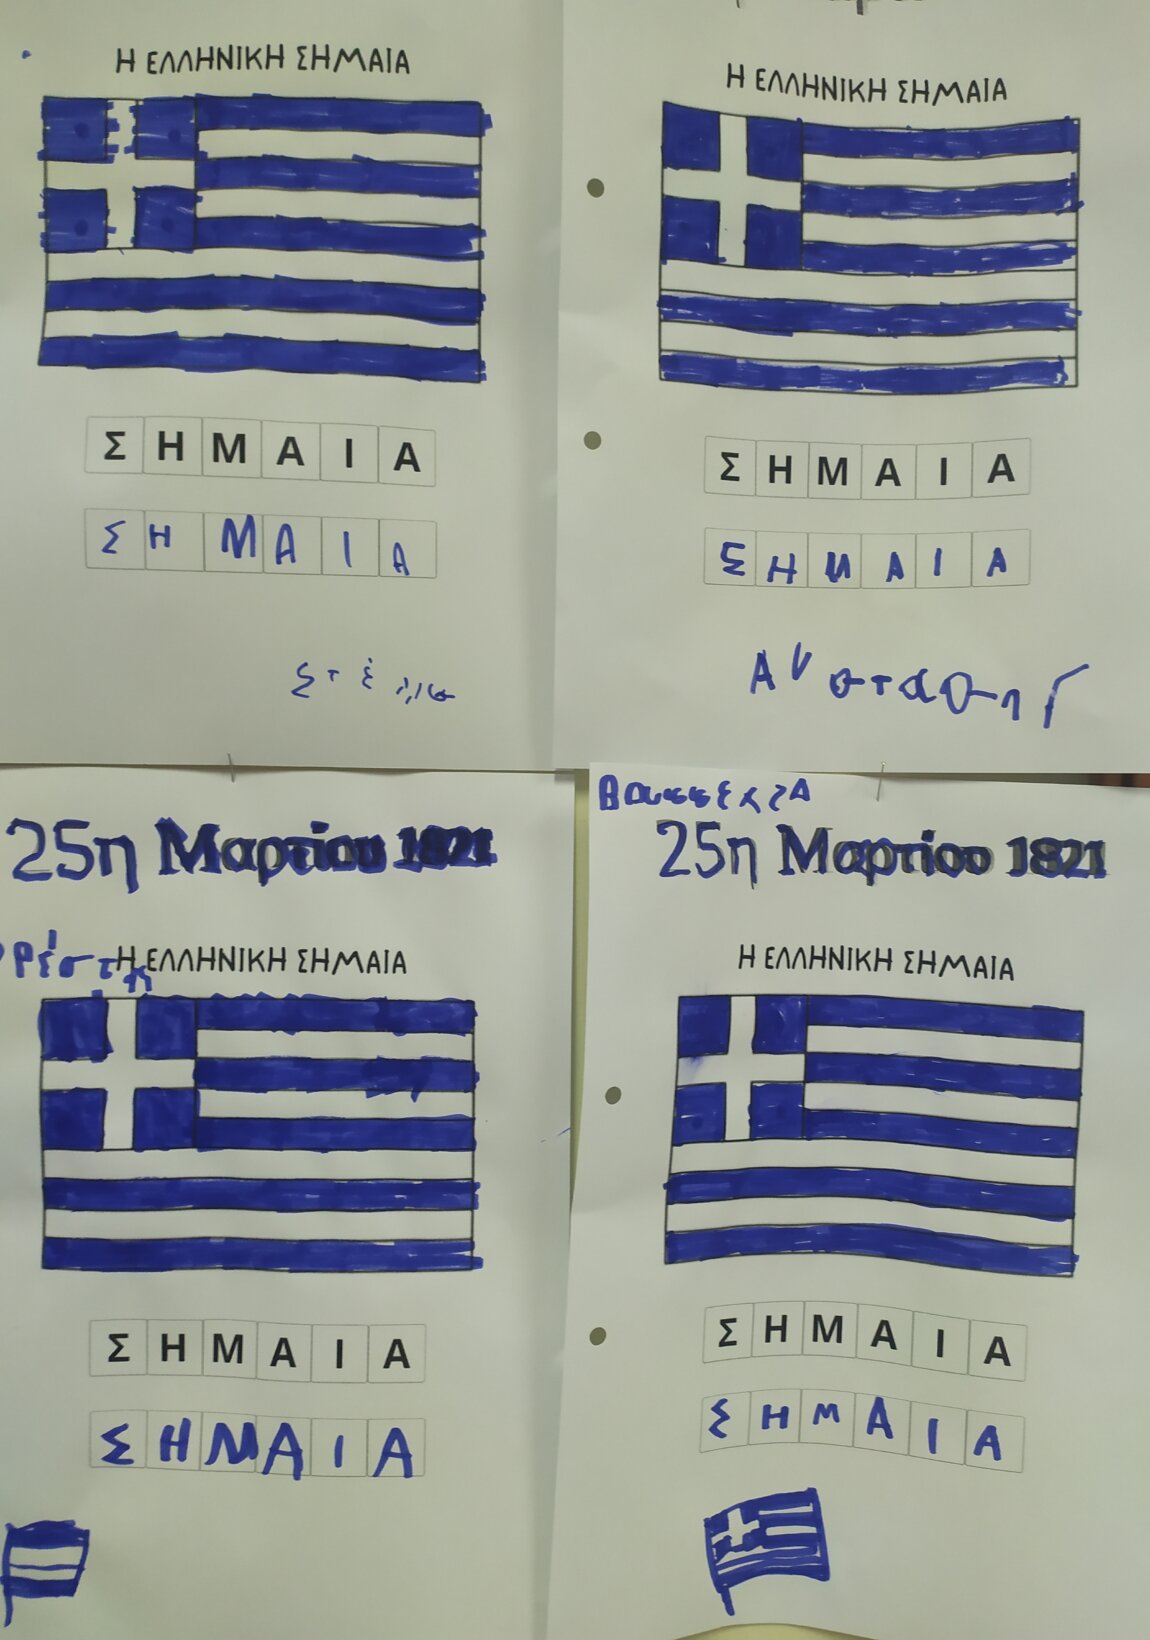 Η ΕΛΛΗΝΙΚΗ ΣΗΜΑΙΑ
ΣΗΜΑΙΑ
ΣΗΜΑΙΑ
Στέλιο
Η ΕΛΛΗΝΙΚΗ ΣΗΜΑΙΑ
ΣΗΜΑΙΑ
ΣΗΜΑΙΑ
25η Μαρτίου 1821
Η ΕΛΛΗΝΙΚΗ ΣΗΜΑΙΑ
ΣΗΜΑΙΑ
ΣΗΜΑΙΑ
25η Μαρτίου 1821
Η ΕΛΛΗΝΙΚΗ ΣΗΜΑΙΑ
ΣΗΜΑΙΑ
ΣΗΜΑΙΑ